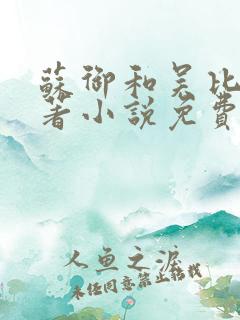 蘇御和吴比
著小説免費
人魚之淚
未经同意禁止转载